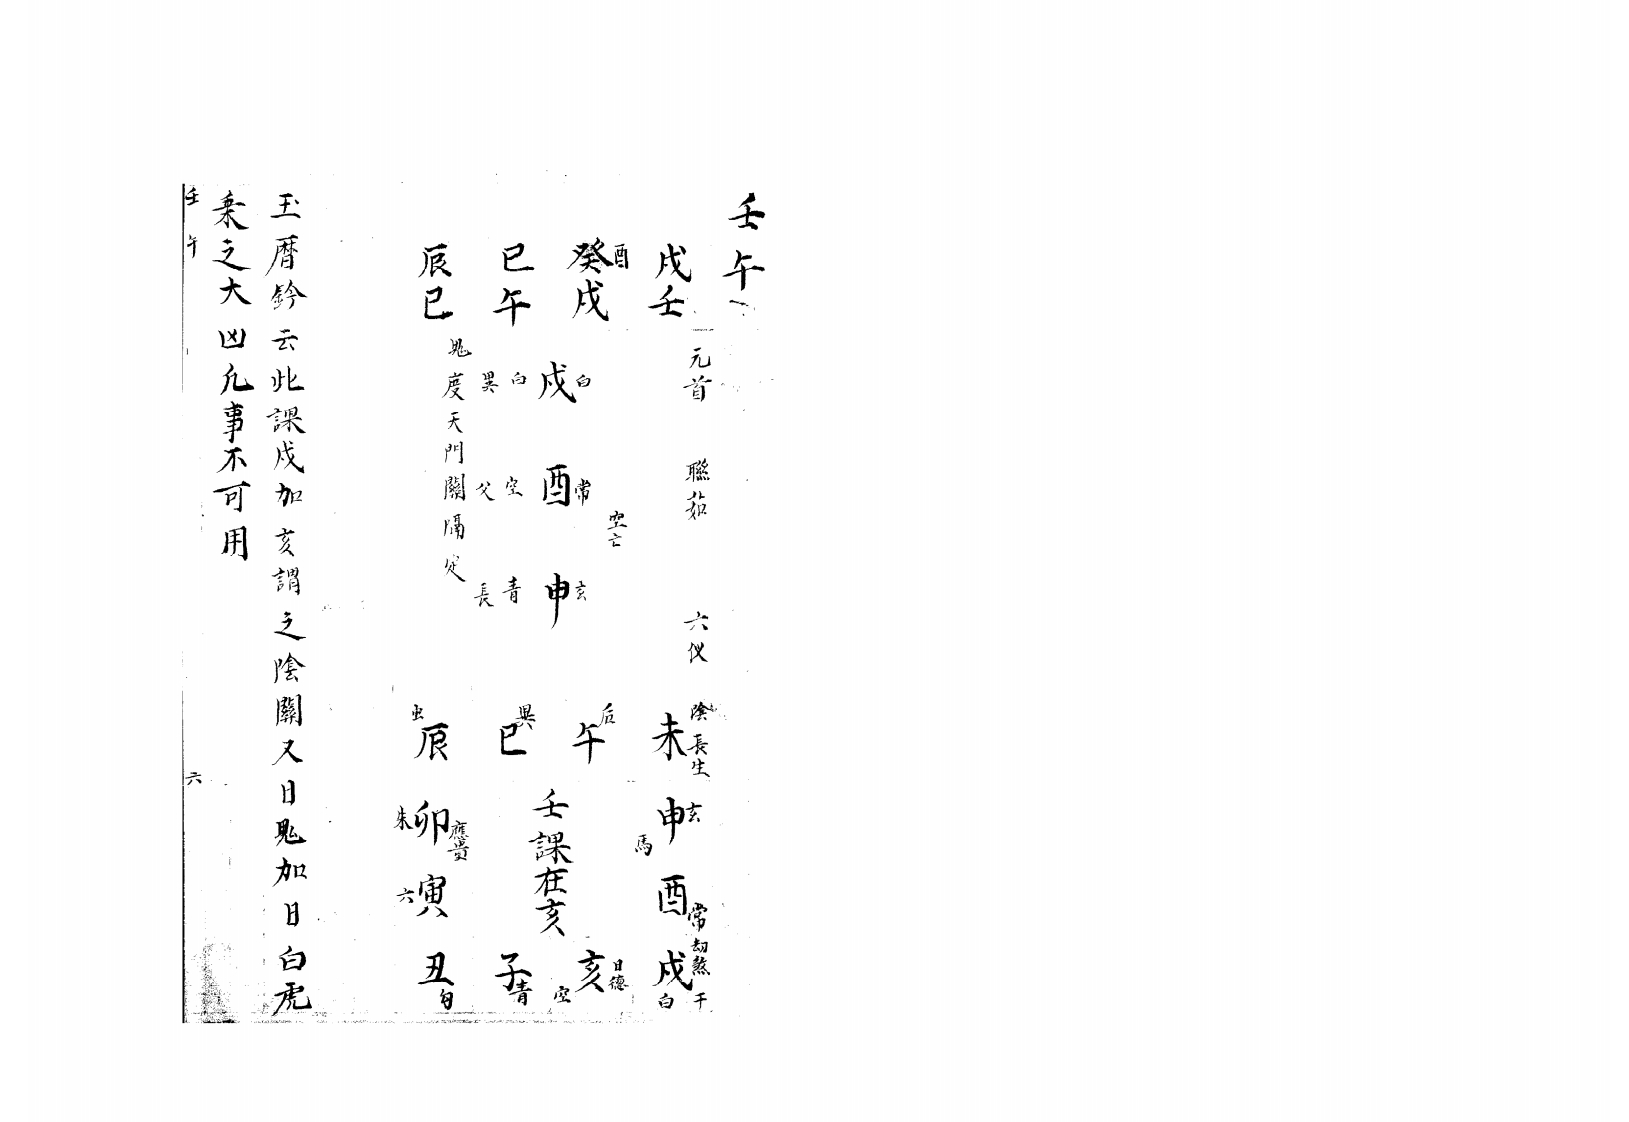 壬午一
戌壬
酉
癸戌
巳午
辰巳
元首 聯茹 六仪
白戌白
常酉空
空亡
玄申青
父
長
鬼度天門關隔定
陰 長生
未
申玄
馬
酉常
劫煞
戌白
干
后
午
巳
辰
虫
朱卯
六寅
丑勾
子青
亥空
日德
壬課在亥
玉曆鈐云此課戌加亥謂之陰關又日鬼加日白虎
乘之大凶凡事不可用
壬午 六